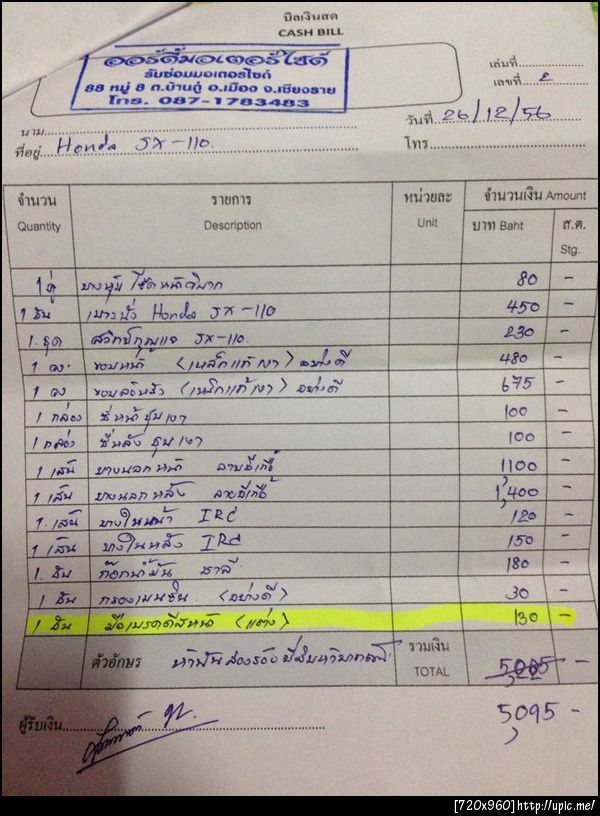 บิลเงินสด
CASH BILL
ออร์ดี้มอเตอร์ไซด์
รับซ่อมมอเตอร์ไซค์
88 หมู่ 8 ต.บ้านดู่ อ.เมือง จ.เชียงราย
โทร. 087-1783483
เล่มที่
เลขที่ 2
นาม
วันที่ 26/12/56
ที่อยู่ Honda SX-110.
โทร
จำนวน รายการ หน่วยละ จำนวนเงิน Amount
Quantity Description Unit บาท Baht ส.ต. Stg.
1 คู่ ยางหุ้มโช๊คหน้า 80 -
1 อัน เบาะนั่ง Honda SX-110 450 -
1. ชุด สวิทย์กุญแจ SX-110. 230 -
1 วง ขอบหน้า (เหล็กแท้เงา) อย่างดี 480 -
1 วง ขอบล้อหลัง (เหล็กแท้เงา) อย่างดี 675 -
1 กล่อง ซี่หน้าชุบเงา 100 -
1 กล่อง ซี่หลังชุบเงา 100 -
1 เส้น ยางนอกหน้า ลาย 1,100 -
1 เส้น ยางนอกหลัง ลาย 1,400 -
1. เส้น ยางในหน้า IRC 120 -
1 เส้น ยางในหลัง IRC 150 -
1. อัน ก๊อกน้ำมัน 180 -
1 อัน กรองเบนซิน (อย่างดี) 30 -
1 อัน มือเบรคดีสหน้า (แต่ง) 130 -
ตัวอักษร รวมเงิน
TOTAL
ผู้รับเงิน 5,095 -
[720x960]http://upic.me/